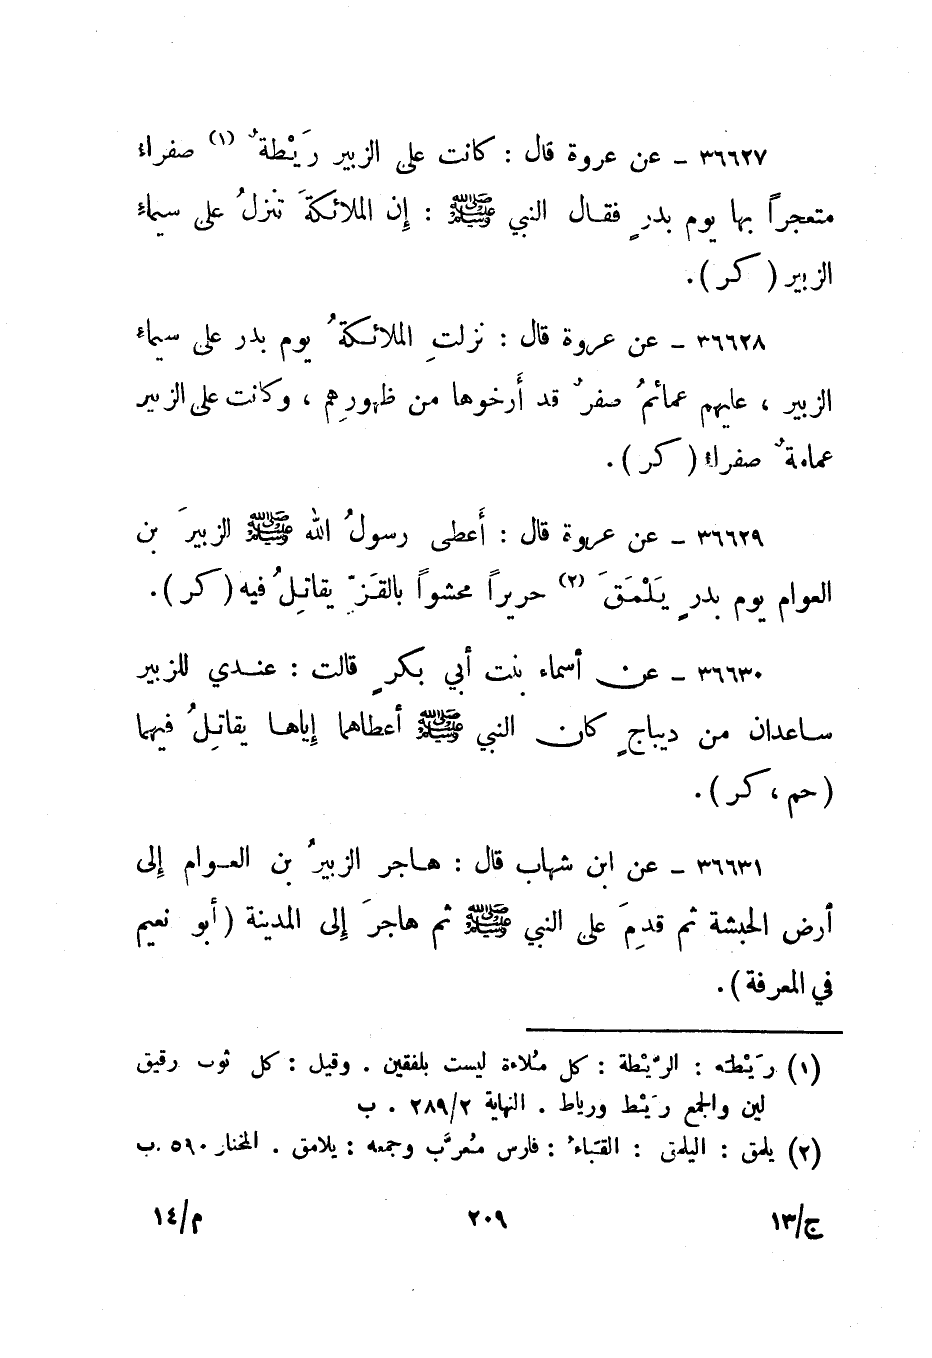 ٣٦٦٢٧ ـ عن عروة قال : كانت على الزبير رَيْطةٌ (١) صفراءُ
متعجراً بها يوم بدرٍ فقال النبي ﷺ : إن الملائكةَ تنزلُ على سيماءِ
الزبير ( كر ) .
٣٦٦٢٨ ـ عن عروة قال : نزلتِ الملائكةُ يوم بدر على سيماء
الزبير ، عليهم عمائمُ صفرٌ قد أَرخوها من ظهورِهم ، وكانت على الزبير
عمامةٌ صفراءُ ( كر ) .
٣٦٦٢٩ ـ عن عروة قال : أَعطى رسولُ الله ﷺ الزبيرَ بن
العوام يوم بدرٍ يَلْمَقَ (٢) حريراً محشواً بالقَزِّ يقاتِلُ فيه ( كر ) .
٣٦٦٣٠ ـ عن أسماء بنت أبي بكرٍ قالت : عندي للزبير
ساعدان من ديباجٍ كان النبي ﷺ أعطاهما إياها يقاتِلُ فيهما
( حم ، كر ) .
٣٦٦٣١ ـ عن ابن شهاب قال : هاجر الزبيرُ بن العوام إلى
أرض الحبشة ثم قدِمَ على النبي ﷺ ثم هاجرَ إلى المدينة ( أبو نعيم
في المعرفة ) .
(١) رَيْطته : الرَّيْطة : كل مُلاءة ليست بلفقين . وقيل : كل ثوب رقيق
لين والجمع رَيْط ورياط . النهاية ٢٨٩/٢ . ب
(٢) يلمق : اليلمق : القَبَاءُ : فارس مُعرَّب وجمعه : يلامق . المختار ٥٩٠ .ب
ج/١٣ ٢٠٩ م/١٤